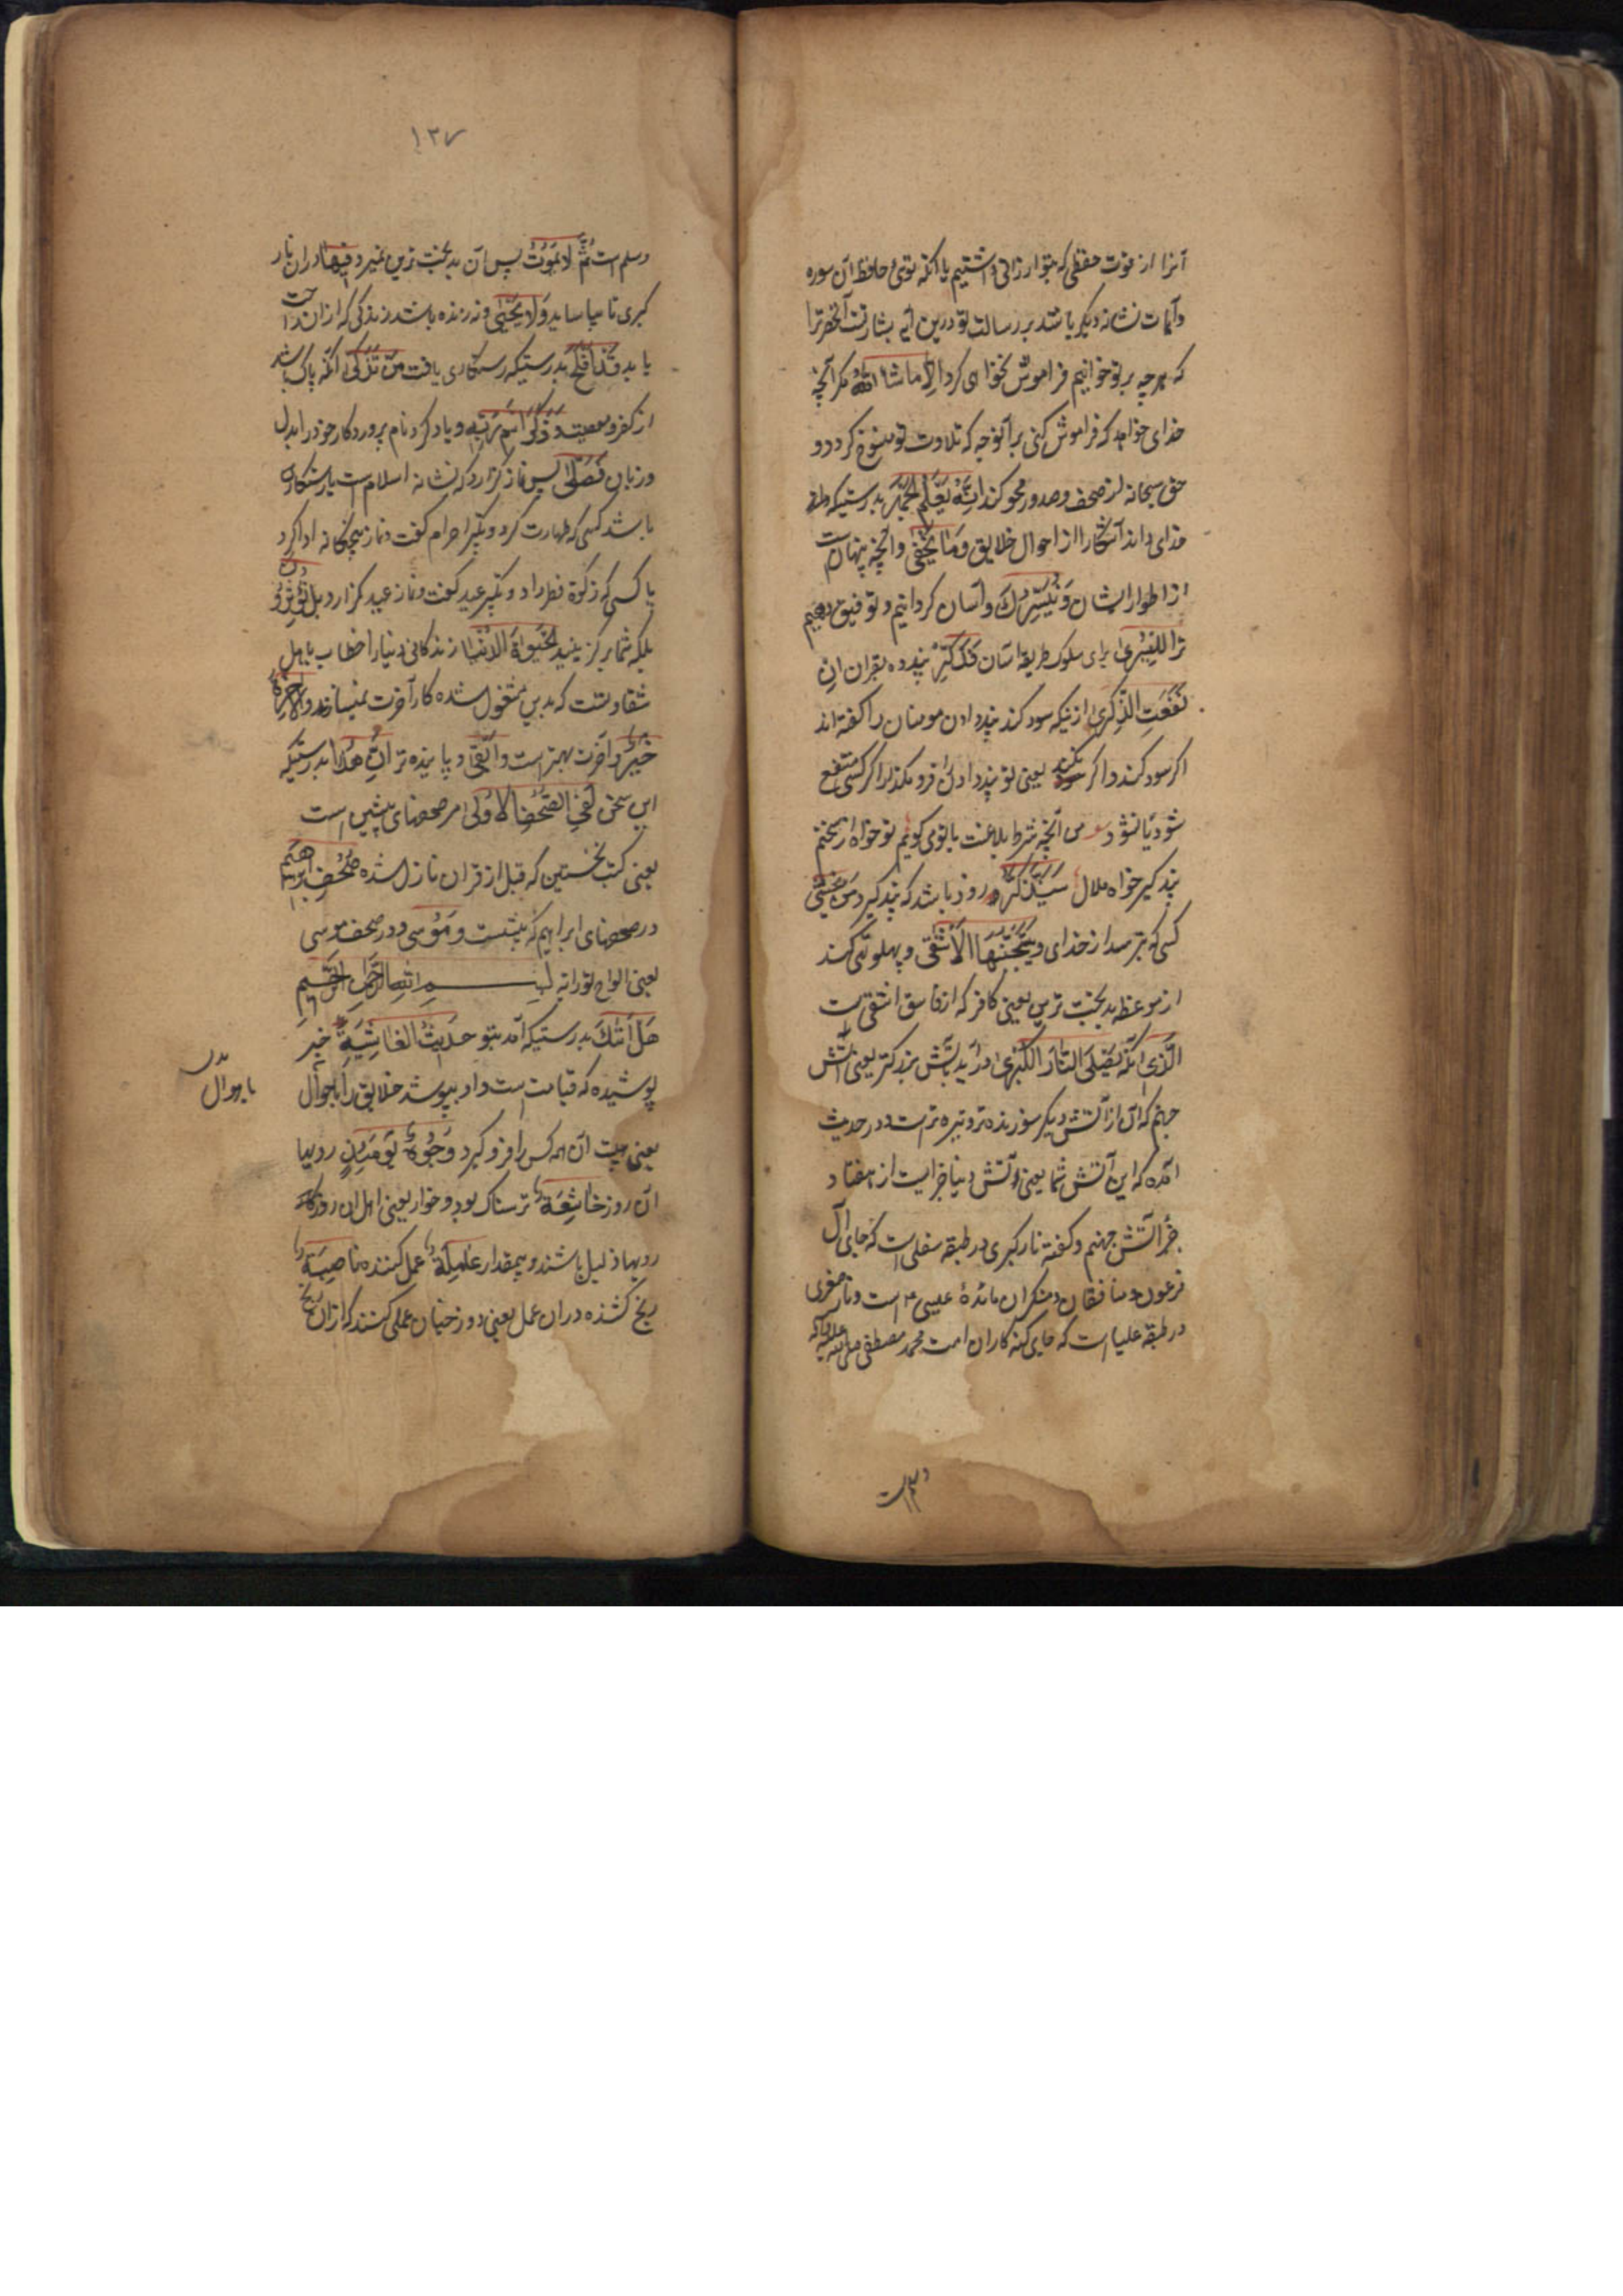 آنرا از قوت حفظی که بتو ارزانی داشتیم با آنکه توئ حافظ آن سوره
وآیات نشانه دیگر باشد بر رسالت تو درین آیه بشارتست آنحضرترا
که هرچه بر تو خوانیم فراموش نخواهی کرد اِلّا ماشاءَ اللّهُ مکر آنچه
خدای خواهد که فراموش کنی بر آنوجه که تلاوت تو منسوخ کردد و
حق سبحانه از صحف وصدور محو کند اِنَّهُ یَعْلَمُ الْجَهْرَ بدرستیکه
خدای داند آشکارا از احوال خلایق وَمَا یَخْفٰی وآنچه پنهانست
از اطوار ایشان وَنُیَسِّرُكَ وآسان کردانیم وتوفیق دهیم
ترا لِلْیُسْرٰی برای سلوک طریقه آسان فَذَکِّرْ پند ده بقران اِنْ
نَفَعَتِ الذِّکْرٰی از نیکه سود کند پند دادن مومنان را کفته اند
اکر سود کند واکر نکند یعنی تو پند دادن فرو مکذار اکر کسی منتفع
شود یا نشود من آنچه شرط بلاغت با تو می کویم تو خواه از سخنم
پند کیر خواه ملال سَیَذَّکَّرُ زود باشد که پند کیرد مَنْ یَخْشٰی
کسی که بترسد از خدای وَیَتَجَنَّبُهَا الْاَشْقٰی وپهلو تهی کند
از موعظه بدبخت ترین یعنی کافر که از فاسق اشقی است
الَّذِی آنکه یَصْلَی النَّارَ الْکُبْرٰی در آید بآتش بزرکتر یعنی آتش
جهنم که آن از آتش دیکر سوزنده تر وتیره تر است ودر حدیث
آمده که این آتش شما یعنی آتش دنیا جزایست از هفتاد
جزء آتش جهنم وکفته نار کبری در طبقه سفلی است که جای آل
فرعون ومنافقان ومنکران مائدهٔ عیسی ع است ونار صغری
در طبقه علیا است که جای کنه کاران امت محمد مصطفی صلی الله علیه وآله
وسلم است
۱۳۷
وسلم است ثُمَّ لَا یَمُوتُ پس آن بدبخت ترین نمیرد فِیهَا دران نار
کبری تا بیاساید وَلَا یَحْیٰی ونه زنده باشد زندکی که ازان راحت
یابد قَدْ اَفْلَحَ بدرستیکه رستکاری یافت مَنْ تَزَکّٰی آنکه پاک باشد
از کفر ومعصیت وَذَکَرَ اسْمَ رَبِّهِ ویاد کرد نام پروردکار خود را بدل
وزبان فَصَلّٰی پس نماز کزارد که نشانه اسلام است یا رستکاری
باشد کسی که طهارت کرد وتکبیر احرام کفت ونماز پنجکانه ادا کرد
یا کسی که زکوة فطر داد وتکبیر عید کفت ونماز عید کزارد بَلْ تُؤْثِرُونَ
بلکه شما بر کزینید الْحَیٰوةَ الدُّنْیَا زندکانی دنیا را خطاب باهل
شقاوتست که بدین مشغول شده کار آخرت نمیسازند وَالْاٰخِرَةُ
خَیْرٌ وآخرت بهتر است وَاَبْقٰی وپاینده تر اِنَّ هٰذَا بدرستیکه
این سخن لَفِی الصُّحُفِ الْاُولٰی در صحفهای پیشین است
یعنی کتب نخستین که قبل از قران نازل شده صُحُفِ اِبْرٰهِیمَ
در صحفهای ابراهیم که بیست وَمُوسٰی ودر صحف موسی
یعنی الواح توراته بِسْمِ اللّهِ الرَّحْمٰنِ الرَّحِیمِ
هَلْ اَتٰیكَ بدرستیکه آمد بتو حَدِیثُ الْغَاشِیَةِ خبر
پوشیده که قیامت است واو بپوشد خلایق را باحوال
بدل
باهوال
یعنی هیبت آن همه کس را فرو کیرد وُجُوهٌ یَوْمَئِذٍ رویها
آن روز خَاشِعَةٌ ترسناک بود وخوار یعنی اهل آن روز که
رویها ذلیل باشند وبیمقدار عَامِلَةٌ عمل کننده نَاصِبَةٌ
رنج کشنده دران عمل یعنی دوزخیان عملی کنند که ازان رنج